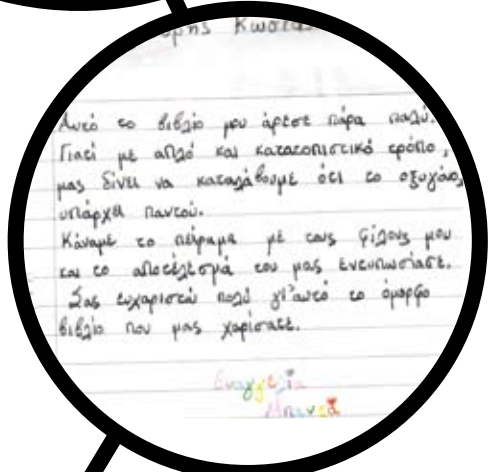 Κωστας
Αυτό το βιβλίο μου άρεσε πάρα πολύ.
Γιατί με απλό και κατατοπιστικό τρόπο,
μας δίνει να καταλάβουμε ότι το οξυγόνο,
υπάρχει παντού.
Κάναμε το πείραμα με τους φίλους μου
και το αποτέλεσμά του μας εντυπωσίασε.
Σας ευχαριστώ πολύ γι'αυτό το όμορφο
βιβλίο που μας χαρίσατε.
Ευαγγελία